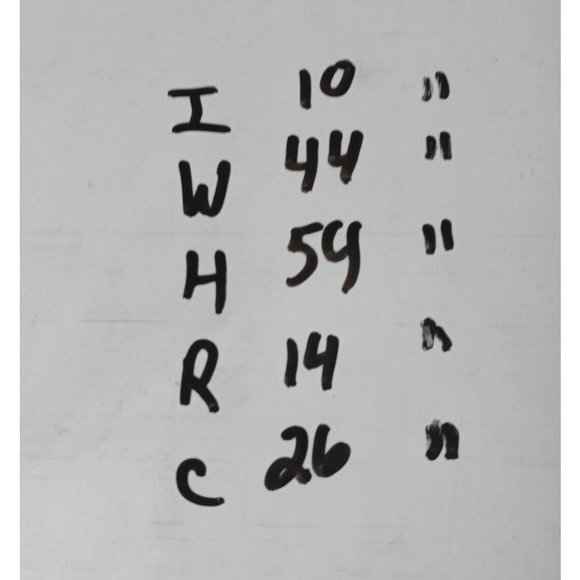 I 10 "
W 44 "
H 54 "
R 14 "
C 26 "